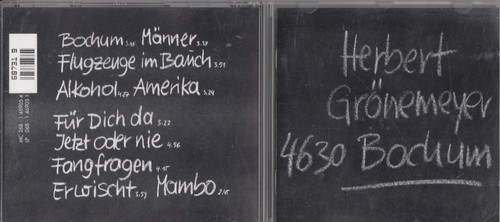 Bochum 3:48 Männer 3:37
Flugzeuge im Bauch 3:54
Alkohol 4:27 Amerika 3:24
Für Dich da 3:22
Jetzt oder nie 4:56
Fangfragen 4:15
Erwischt 3:59 Mambo 2:45
Herbert
Grönemeyer
4630 Bochum